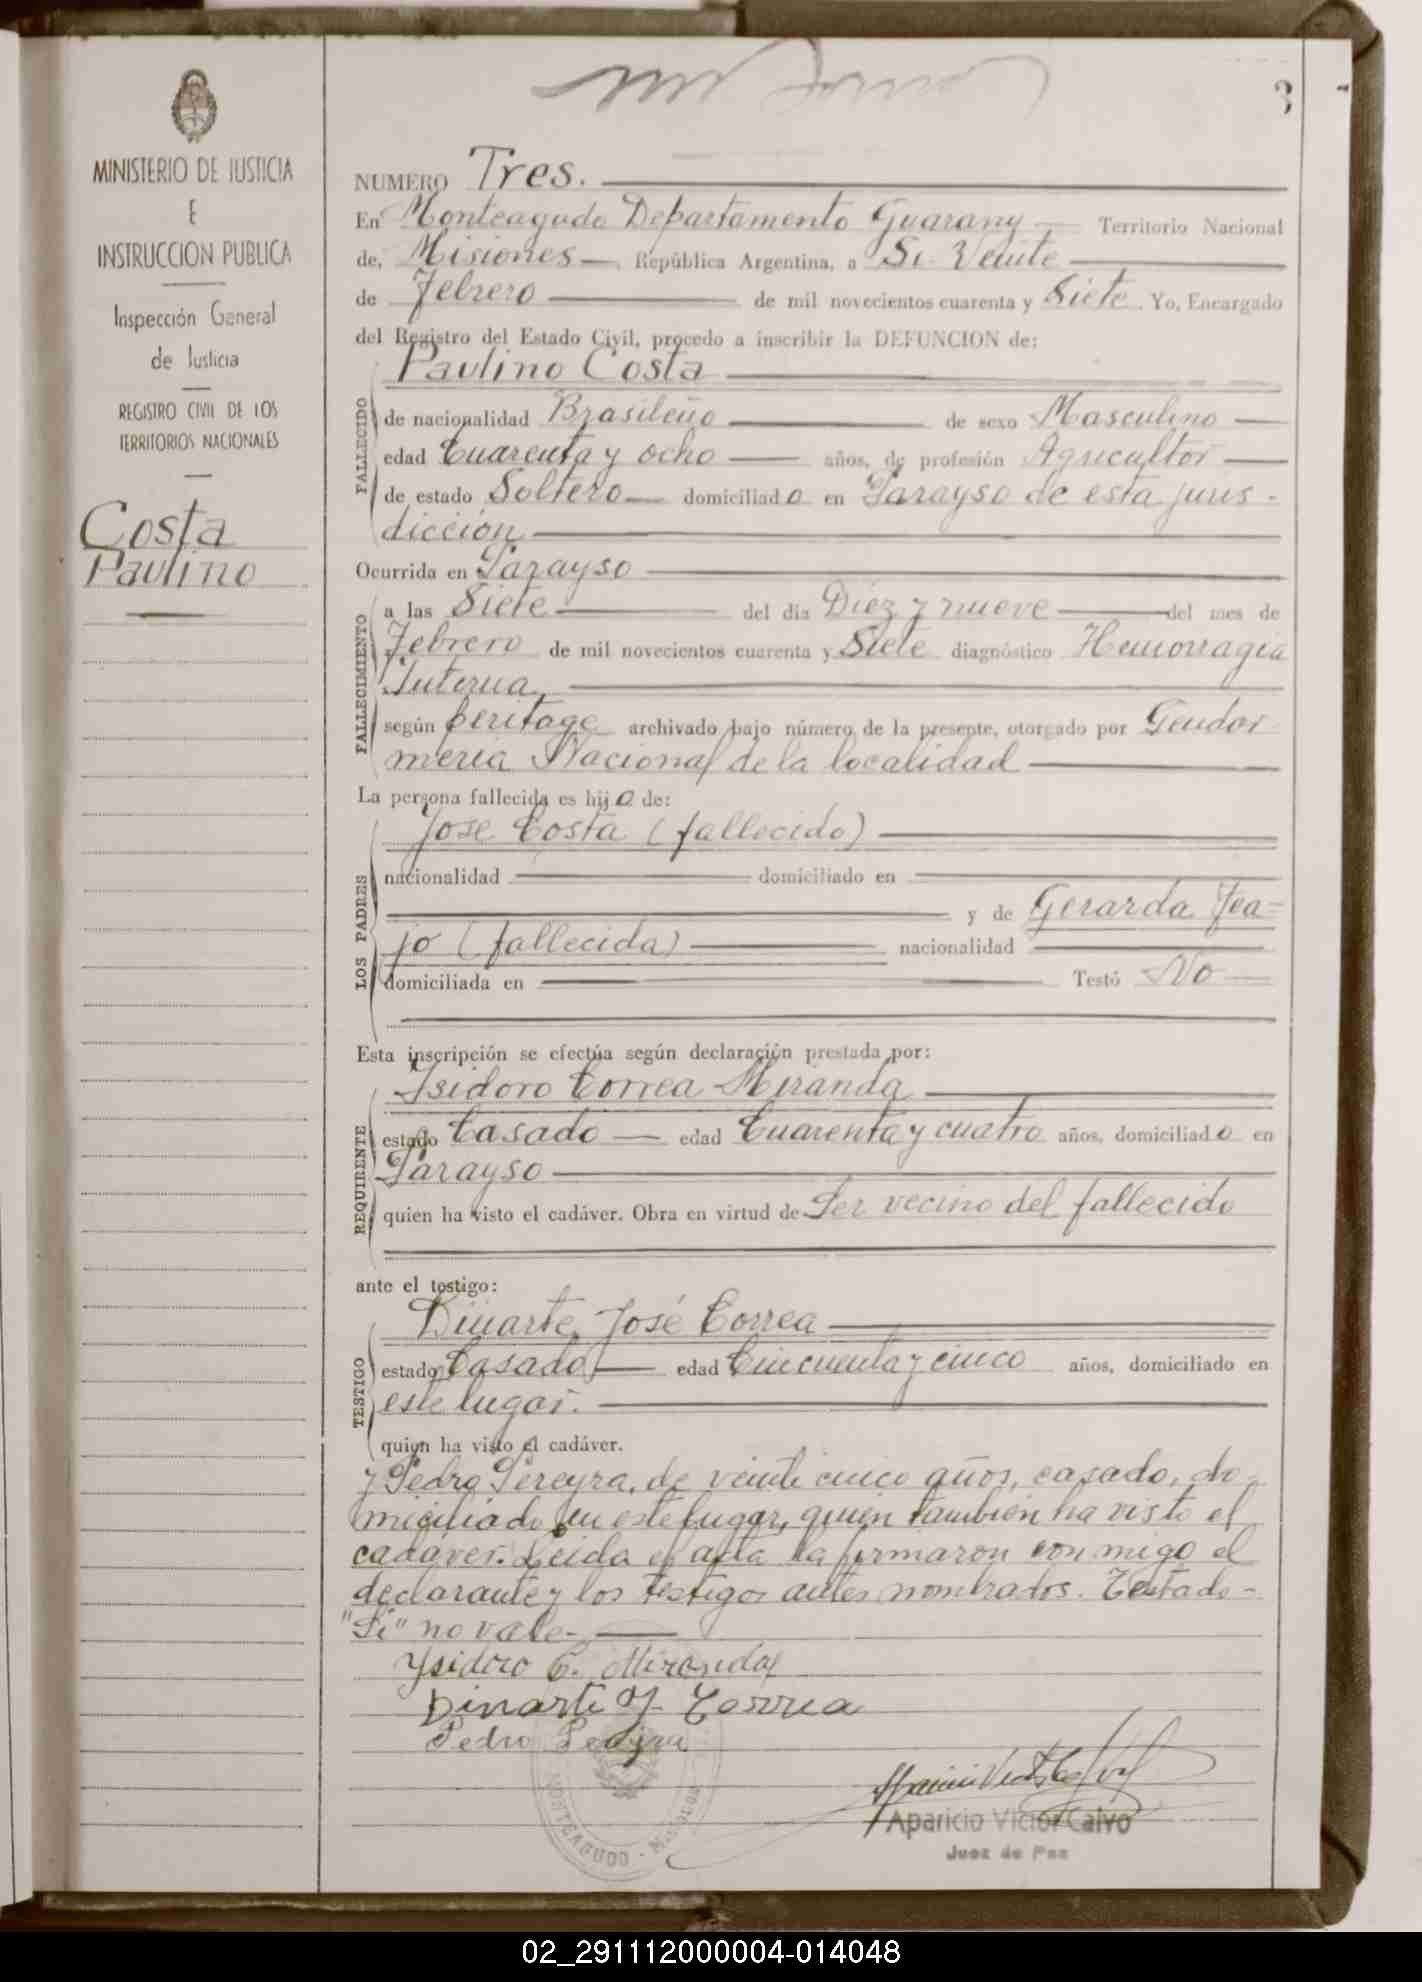 3
MINISTERIO DE JUSTICIA
E
INSTRUCCION PUBLICA
Inspección General
de Justicia
REGISTRO CIVIL DE LOS
TERRITORIOS NACIONALES
Costa
Paulino
NUMERO Tres.
En Monteagudo Departamento Guarany Territorio Nacional
de, Misiones República Argentina, a Si Veinte
de Febrero de mil novecientos cuarenta y Siete Yo, Encargado
del Registro del Estado Civil, procedo a inscribir la DEFUNCION de:
FALLECIDO
Paulino Costa
de nacionalidad Brasileño de sexo Masculino
edad Cuarenta y ocho años, de profesión Agricultor
de estado Soltero domiciliado en Parayso de esta juris-
dicción
Ocurrida en Parayso
FALLECIMIENTO
a las Siete del día Diez y nueve del mes de
Febrero de mil novecientos cuarenta y Siete diagnóstico Hemorragia
Interna
según peritage archivado bajo número de la presente, otorgado por Gendar
meria Nacional de la localidad
La persona fallecida es hijo de:
LOS PADRES
Jose Costa (fallecido)
nacionalidad domiciliado en
y de Gerarda Fea-
jo (fallecida) nacionalidad
domiciliada en Testó No
Esta inscripción se efectúa según declaración prestada por:
REQUIRENTE
Isidoro Correa Miranda
estado Casado edad Cuarenta y cuatro años, domiciliado en
Parayso
quien ha visto el cadáver. Obra en virtud de Ser vecino del fallecido
ante el testigo:
TESTIGO
Dinarte José Correa
estado Casado edad Cincuenta y cinco años, domiciliado en
este lugar.
quien ha visto el cadáver.
y Pedro Pereyra, de veinte cinco años, casado, do-
miciliado en este lugar, quien tambien ha visto el
cadaver. Leida el acta la firmaron con migo el
declarante y los testigos antes nombrados. Testado-
"Si" no vale-
Ysidoro C. Miranda
Dinarte J. Correa
Pedro Pereyra
MONTEAGUDO - Misiones
Aparicio Victor Calvo
Juez de Paz
02_291112000004-014048